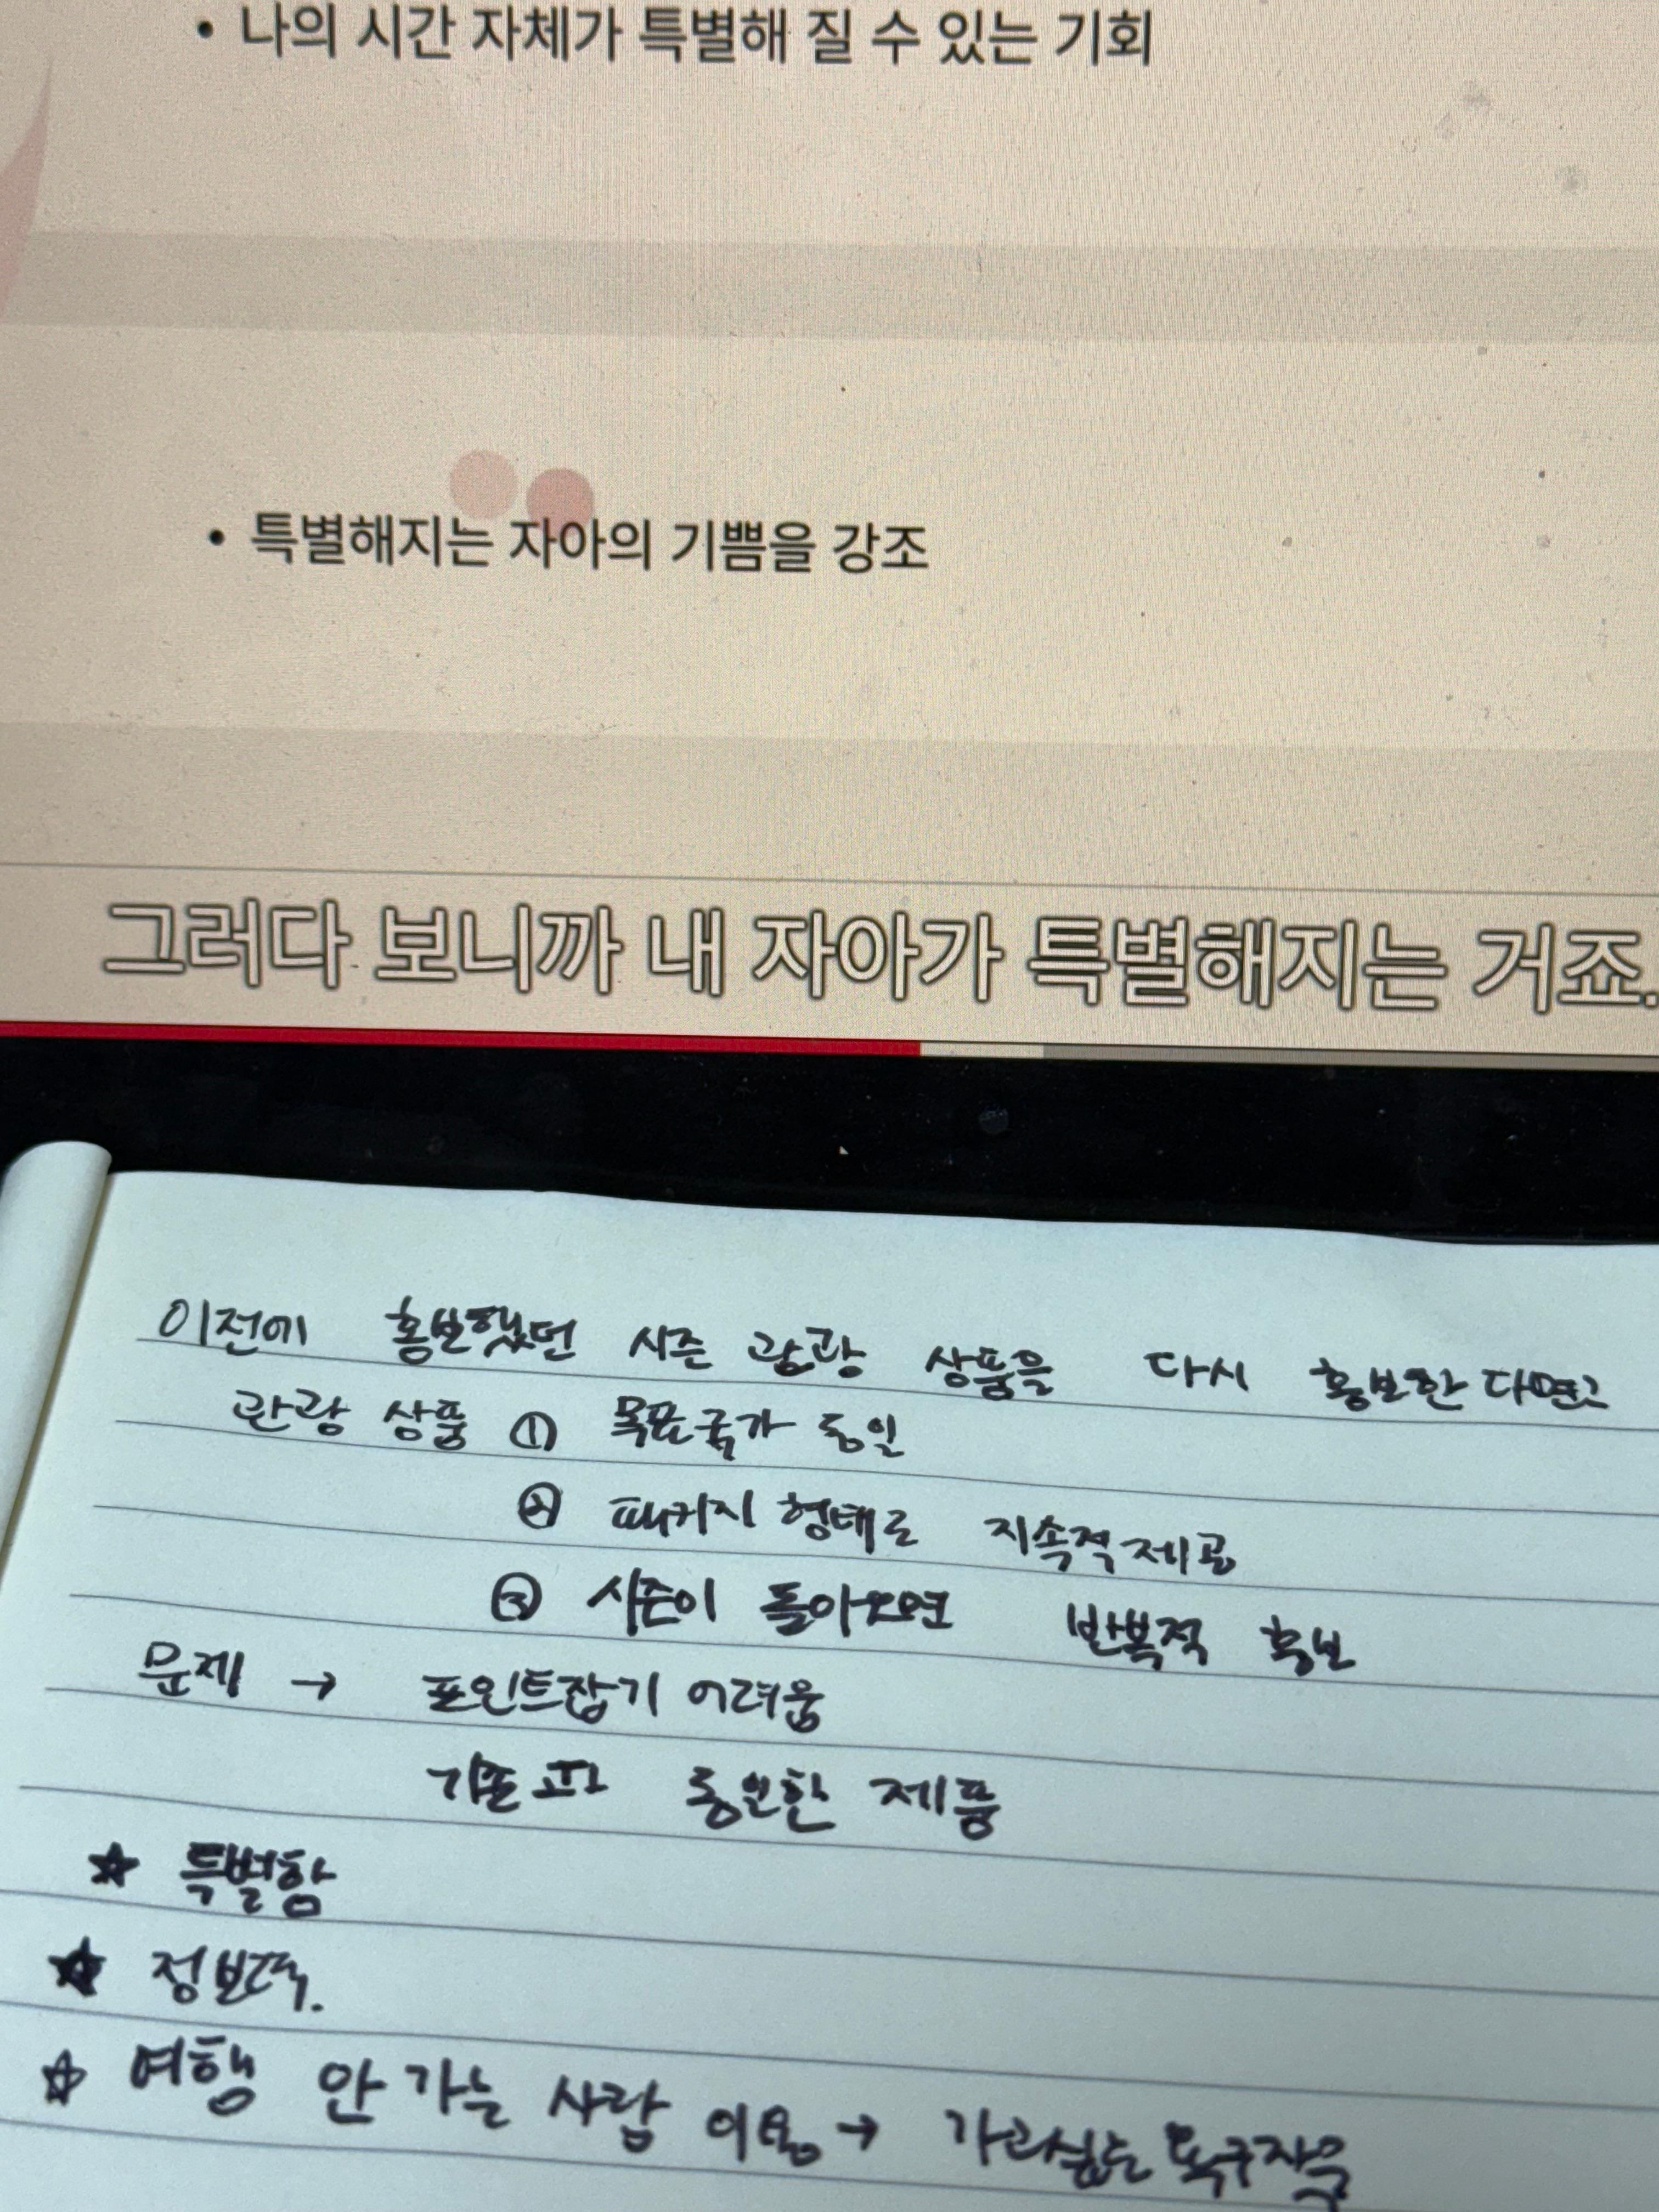 • 나의 시간 자체가 특별해 질 수 있는 기회
• 특별해지는 자아의 기쁨을 강조
그러다 보니까 내 자아가 특별해지는 거죠.
이전에 홍보했던 시즌 관광 상품을 다시 홍보한다면?
관광 상품 ① 목표국가 동일
② 패키지 형태로 지속적 제공
③ 시즌이 돌아오면 반복적 홍보
문제 → 포인트잡기 어려움
기존과 동일한 제품
☆ 특별함
★ 정보력.
☆ 여행 안 가는 사람 이용 → 가고싶는 욕구자극